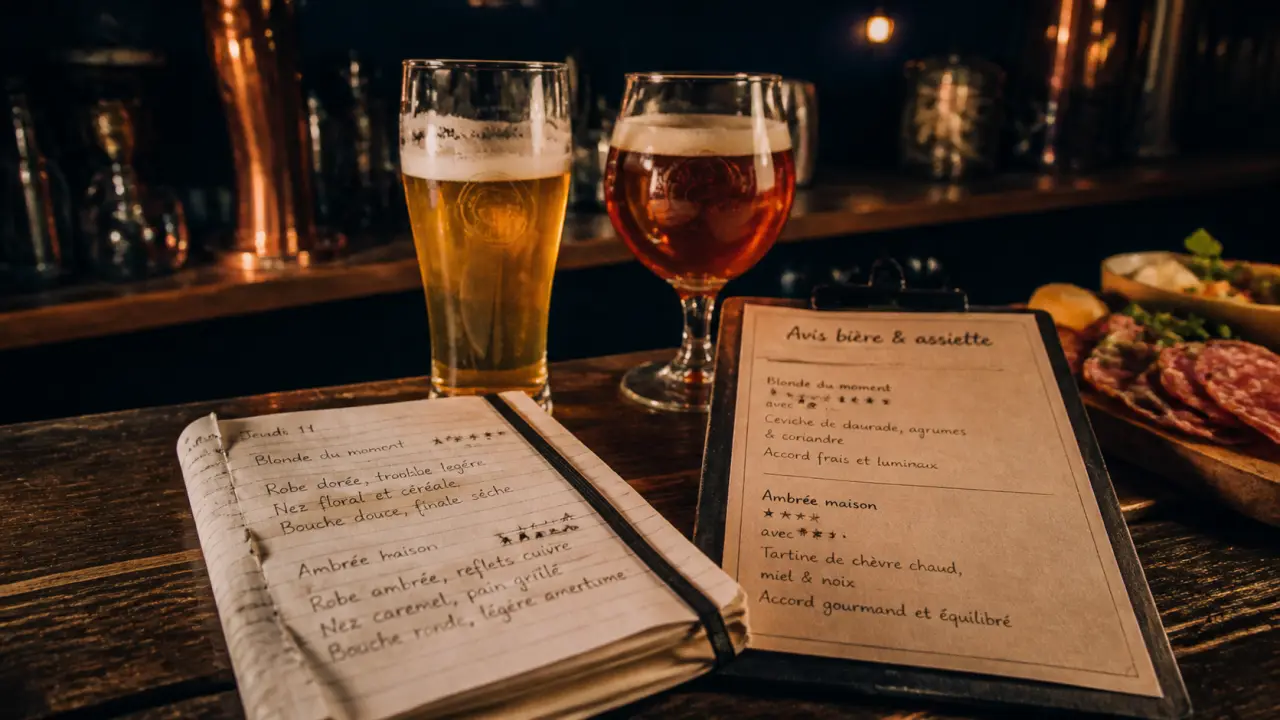 Jeudi 11
Blonde du moment
Robe dorée, troolbbe legére
Nez floral et céréale.
Bouche douce, finale sèche
Ambrée maison
Robe ambrée, reflets cuivre
Nez caramel, pain grillé
Bouche ronde, légère amertume
Avis bière & assiette
Blonde du moment
avec
Ceviche de daurade, agrumes
& coriandre
Accord frais et luminaux
Ambrée maison
★★★★
avec
Tartine de chèvre chaud,
miel & noix
Accord gourmand et équilibré